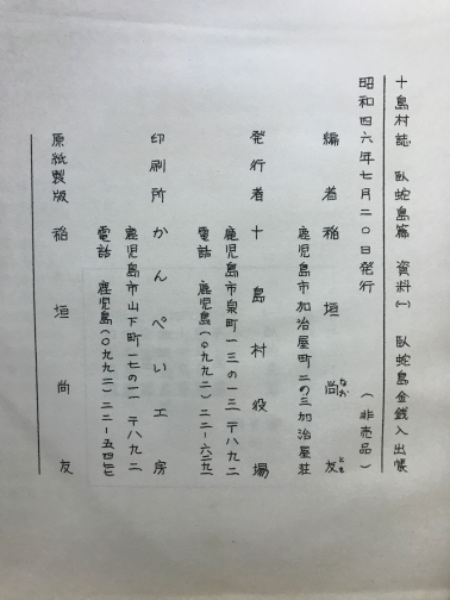 十島村誌 臥蛇島篇 資料(一) 臥蛇島金銭入出帳
昭和四六年七月二〇日発行 (非売品)
編者 稲垣尚友
なお とも
鹿児島市加治屋町二の三加治屋荘
発行者 十島村役場
鹿児島市泉町一三の一三 〒八九二
電話 鹿児島(〇九九二)二二-六二九一
印刷所 かんぺい工房
鹿児島市山下町一七の一一 〒八九二
電話 鹿児島(〇九九二)二二-五四
原紙製版 稲垣尚友